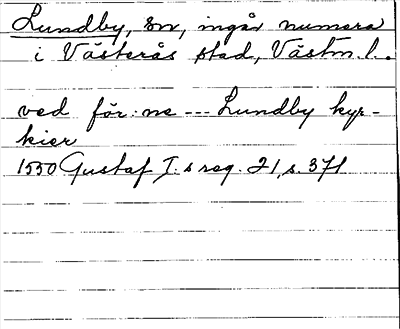 Lundby, sn, ingår numera
i Västerås stad, Västm. l.
ved för:ne --- Lundby kyr-
kier
1550 Gustaf I.s reg. 21, s. 371